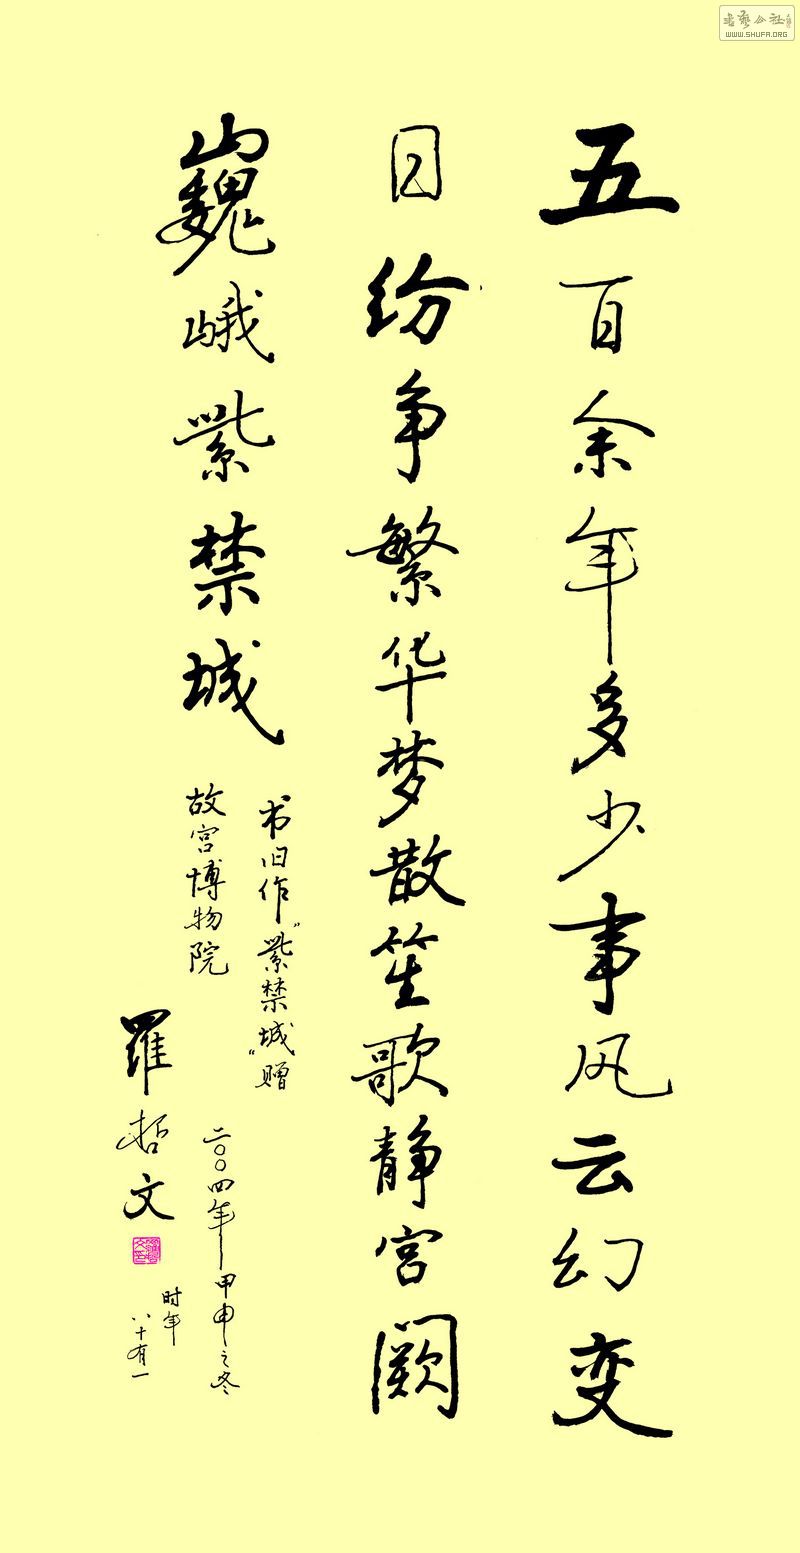 五百余年多少事风云幻变
日纷争繁华梦散笙歌静宫阙
巍峨紫禁城
书旧作“紫禁城”赠
故宫博物院
二〇〇四年甲申之冬
罗哲文
时年
八十有一
WWW.SHUFA.ORG